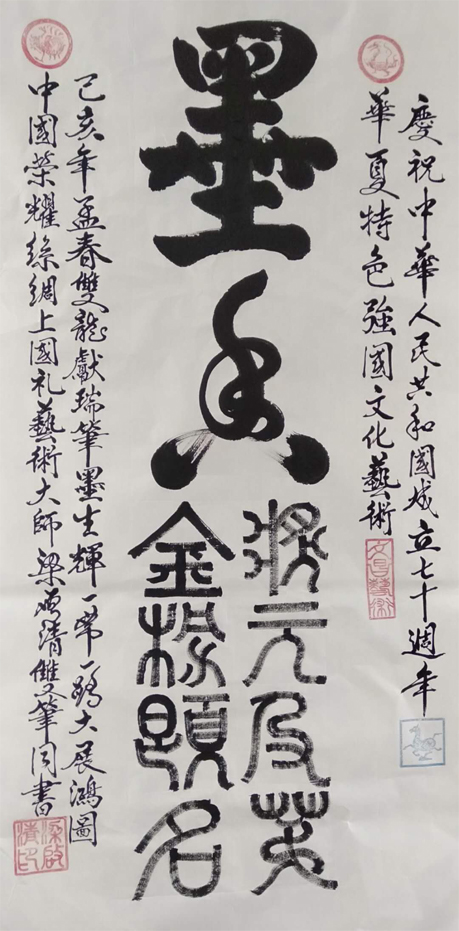 慶祝中華人民共和國成立七十週年
華夏特色強國文化藝術
墨香
狀元及苐
金榜題名
己亥年孟春雙龍獻瑞筆墨生輝一帶一路大展鴻圖
中國榮耀絲綢上國礼藝術大師梁啟清雙筆同書
梁啟清印